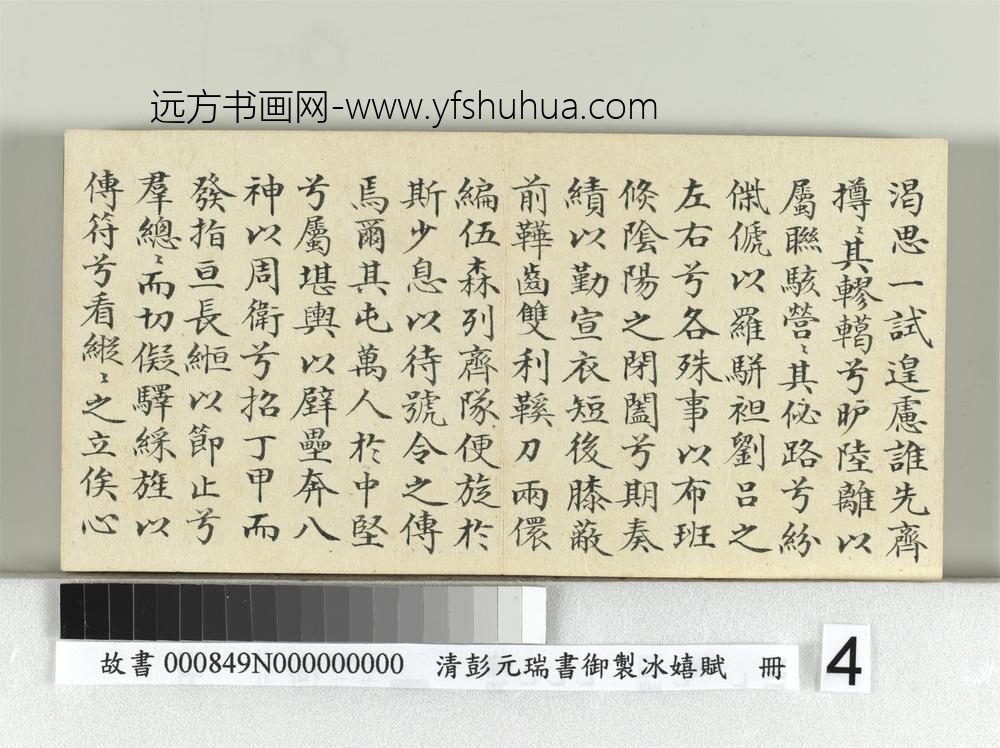 远方书画网-www.yfshuhua.com
渴思一試遑慮誰先齊
撙〻其轇轕兮眇陸離以
屬聯駭營〻其佖路兮紛
傑傂以羅駢袒劉呂之
左右兮各殊事以布班
倏陰陽之閉闔兮期奏
績以勤宣衣短後膝蔽
前鞾齒雙利鞵刀兩儇
編伍森列齊隊便旋於
斯少息以待號令之傳
焉爾其屯萬人於中堅
兮屬堪輿以壁壘奔八
神以周衛兮招丁甲而
發指亘長縆以節止兮
羣總〻而切儗驛綵旌以
傳符兮看縱〻之立俟心
故書 000849N000000000 清彭元瑞書御製冰嬉賦 冊
4